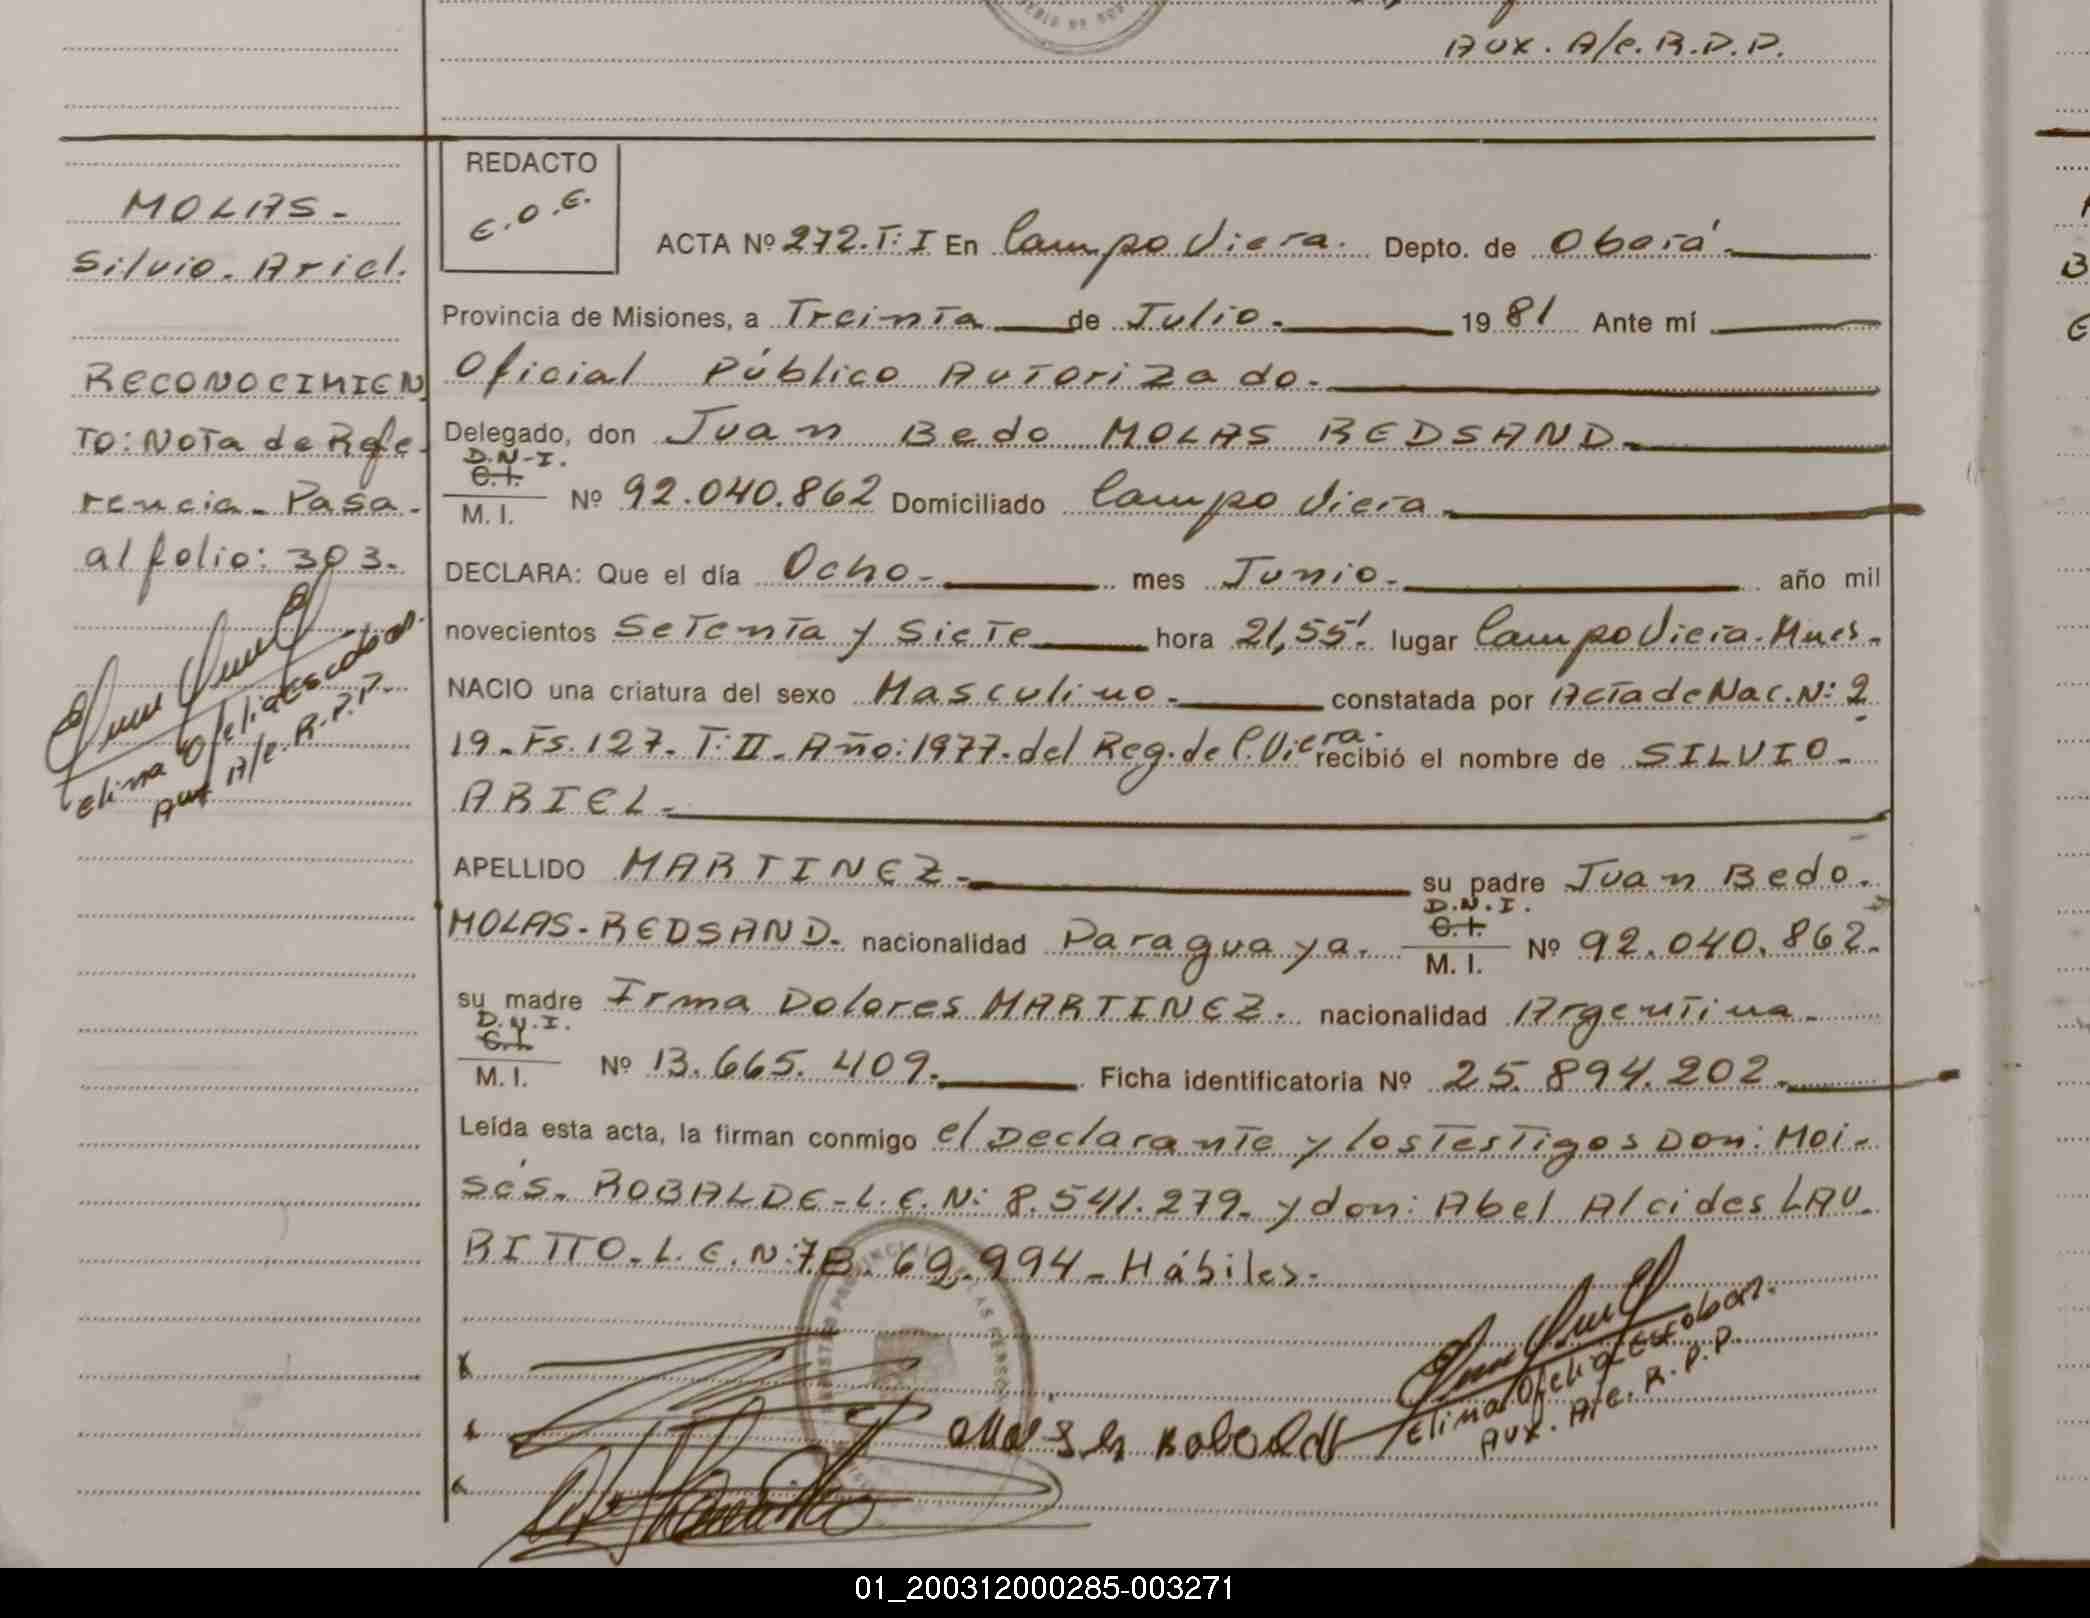 AUX. A/c. R.D.P.
REDACTO
E.O.E.
MOLAS-
Silvio. Ariel.
RECONOCIMIEN
TO: NOTA de Refe-
rencia- Pasa-
al folio: 303.
Elina Ofelia Escobar.
Aux A/c. R.P.P.
ACTA Nº 272. T: I En Campo Viera. Depto. de Oberá.
Provincia de Misiones, a Treinta de Julio. 1981 Ante mí
Oficial Público Autorizado.
Delegado, don Juan Bedo MOLAS REDSAND.
D.N.I.
C.I.
M. I. Nº 92.040.862 Domiciliado Campo Viera.
DECLARA: Que el día Ocho. mes Junio. año mil
novecientos Setenta y Siete hora 21,55'. lugar Campo Viera. Mnes.
NACIO una criatura del sexo Masculino. constatada por Acta de Nac. N: 2
19. Fs. 127. T: II. Año: 1977. del Reg. de C. Viera. recibió el nombre de SILVIO-
ARIEL.
APELLIDO MARTINEZ. su padre Juan Bedo.
MOLAS-REDSAND. nacionalidad Paraguaya. D.N.I. C.I. M. I. Nº 92.040.862.
su madre Irma Dolores MARTINEZ. nacionalidad Argentina.
D.N.I.
C.I.
M. I. Nº 13.665.409. Ficha identificatoria Nº 25.894.202.
Leída esta acta, la firman conmigo el Declarante y los Testigos Don: Moi-
sés. ROBALDE-L.E. N: 8.541.279. y don: Abel Alcides LAU-
RITTO. L.E. N: 7B. 69.994- Hábiles.
Elina Ofelia Escobar.
Aux. A/c. R.P.P.
01_200312000285-003271